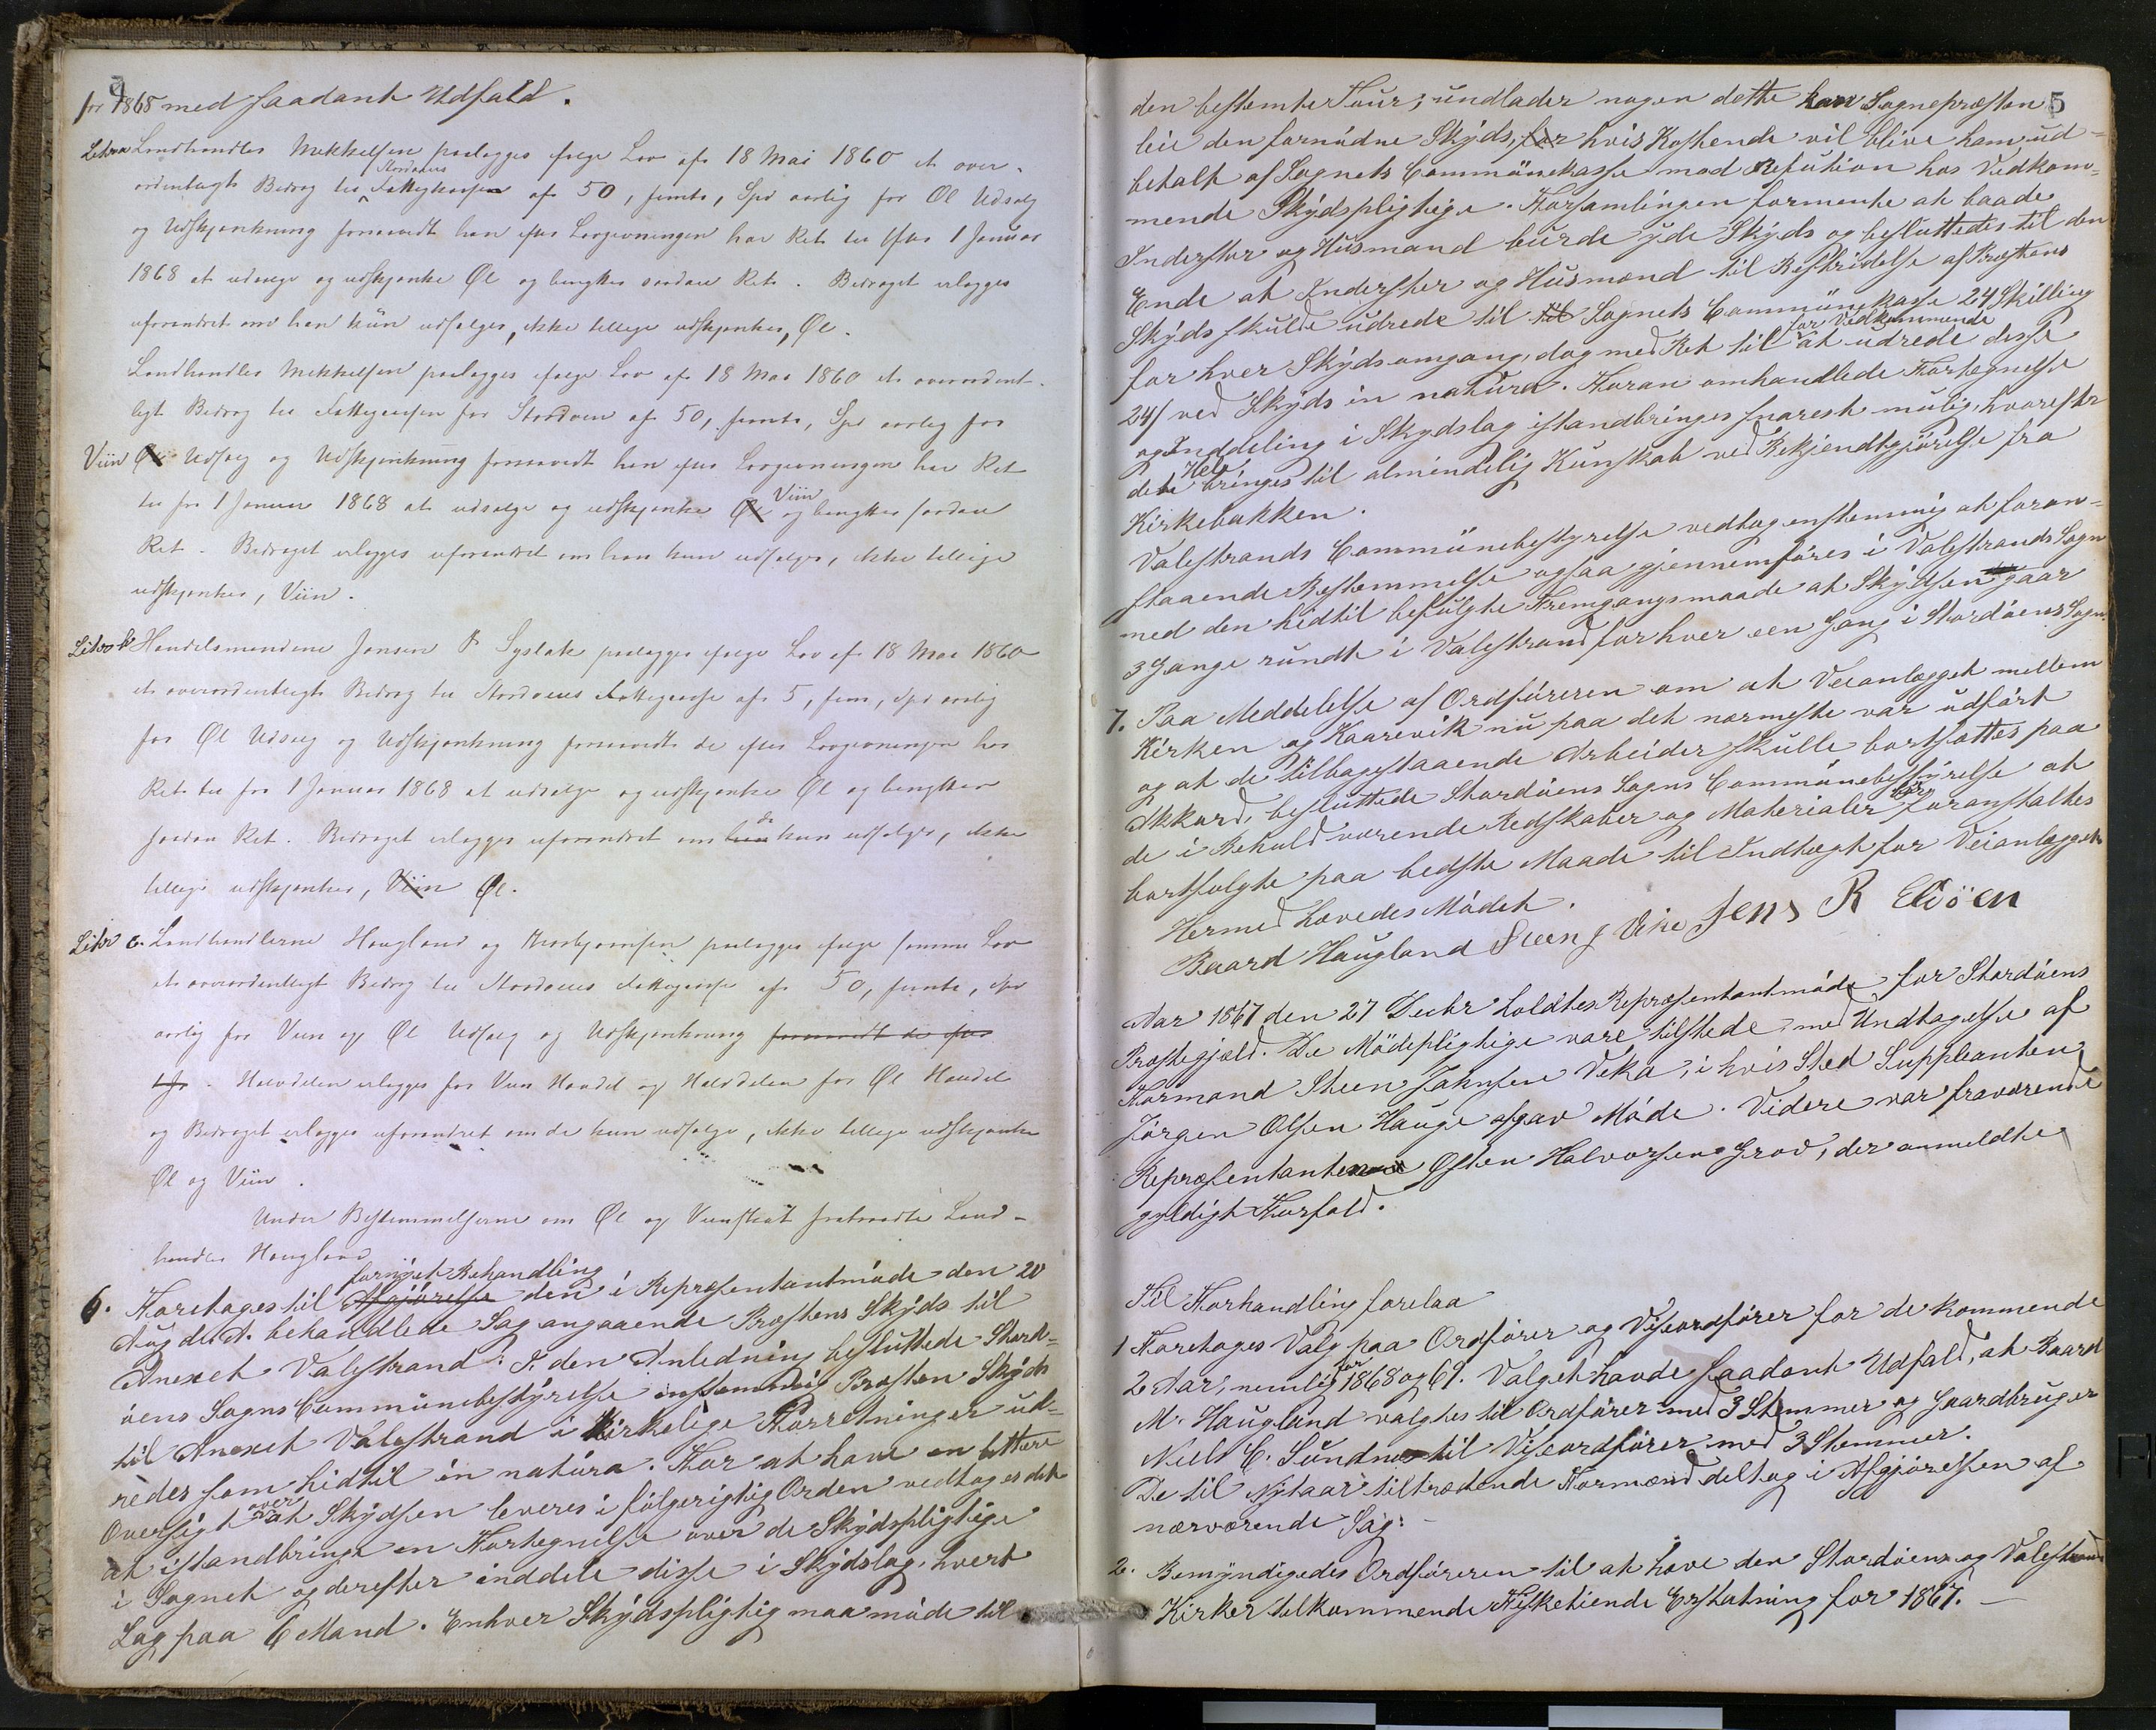 for 1868 med saadant Udfald.
Litra a Landhandler Mikkelsen paalægges ifølge Lov af 18 Mai 1860 et over-
ordentligt Bidrag til Stordøens Fattigkasse af 50, femti, Spd aarlig for Øl Udsalg
og Udskjænkning forsaavidt han efter Lovgivningen har Ret til efter 1 Januar
1868 at udsælge og udskjænke Øl og benytter saadan Ret. Bidraget erlægges
uforandret om han kün udsælger, ikke tillige udskjænker, Øl.
Landhandler Mikkelsen paalægges ifølge Lov af 18 Mai 1860 et overordent-
ligt Bidrag til Fattigkassen for Stordøen af 50, femti, Spd aarlig for
Viin Øl Udsalg og Udskjænkning forsaavidt han efter Lovgivningen har Ret
til fra 1 Januar 1868 at udsælge og udskjænke Øl Viin og benytter saadan
Ret. Bidraget erlægges uforandret om han kun udsælger, ikke tillige
udskjænker, Viin.
Litra b Handelsmændene Jensen & Syslak paalægges ifølge Lov af 18 Mai 1860
et overordentligt Bidrag til Stordøens Fattigkasse af 5, fem, Spd aarlig
for Øl Udsalg og Udskjænkning forsaavidt de efter Lovgivningen har
Ret til fra 1 Januar 1868 at udsælge og udskjænke Øl og benytter
saadan Ret. Bidraget erlægges uforandret om han de kun udsælger, ikke
tillige udskjænker, Viin Øl.
Litr c. Landhandlerne Haugland og paalægges ifølge samme Lov
et overordentligt Bidrag til Stordøens Fattigkasse af 50, femti, Spd
aarlig for Viin og Øl Udsalg og Udskjænkning forsaavidt de
Halvdelen erlægges for Viin Handel og Halvdelen for Øl Handel
og Bidraget erlægges uforandret om de kun udsælge, ikke tillige udskjænke
Øl og Viin.
Under Bestemmelserne om Øl og Viinskat fratraadte Land-
handler Haugland
6. Foretoges til Afgjørelse fornyet Behandling den i Repræsentantmøde den 20
Aug d. A. behandlede Sag angaaende Præstens Skÿds til
Anexet Valestrand: I den Anledning besluttede Stord-
øens Sogns Commünebestÿrelse enstemmig Præsten Skÿds
til Anexet Valestrand i kirkelige Forretninger ud-
redes som hidtil in natúra. For at have en lettere
Oversigt over at Skÿdsen leveres i følgerigtig Orden vedtoges det
at istandbringe en Fortegnelse over de Skÿdspligtige
i Sognet og derefter inddele disse i Skÿdslag, hvert
Lag paa 6 Mand. Enhver Skÿdspligtig maa møde til
5
den bestemte Tour; undlader nogen dette kan Sognepræsten
leie den fornødne Skÿds, for hvis Kostende vil blive ham ud-
betalt af Sognets Commünekasse mod Refution hos Vedkom-
mende Skÿdspligtige. Forsamlingen formente at baade
Inderster og Husmænd burde ÿde Skÿds og besluttedes til den
Ende at Inderster og Husmænd til Bestridelse af Præstens
Skÿds skulde udrede til til Sognets Commünekasse 24 Skilling
for hver Skÿdsomgang, dog med Ret til for Vedkommende at udrede disse
24 s ved Skÿds in natura. Foran omhandlede Fortegnelse
og Inddeling i Skydslag istandbringes snarest mulig, hvorefter
det Hele bringes til almindelig Kundskab ved Bekjendtgjørelse fra
Kirkebakken.
Valestrands Commünebestyrelse vedtog enstemmig at foran-
staaende Bestemmelse ogsaa gjennemføres i Valestrands Sogn
med den hidtil befulgte Fremgangsmaade at Skÿdsen gaar
3 Gange rundt i Valestrand for hver een Gang i Stordøens Sogn.
7. Paa Meddelelse af Ordføreren om at Veianlægget mellem
Kirken og Kaarevik nu paa det nærmeste var udført
og at de tilbagestaaende Arbeider skulle bortsættes paa
Akkord, besluttede Stordøens Sogns Commünebestÿrelse at
de i Behold værende Redskaber og Materialier bør foranstaltes
bortsolgte paa bedste Maade til Indtægt for Veianlægget.
Hermed hævedes Mødet.
Baard Haugland Steen J Vike Jens R Eldöen
Aar 1867 den 27 Decbr holdtes Repræsentantmøde for Stordøens
Præstegjæld. De Mødepligtige vare tilstede med Undtagelse af
Formand Steen Johnsen Vika, i hvis Sted Suppleanten
Jørgen Olsen Hauge afgav Møde. Videre var fraværende
Repræsentanten Østen Halvorsen Grov, der anmeldte
gyldigt Forfald.
Til Forhandling forelaa
1 Foretages Valg paa Ordfører og Viseordfører for de kommende
2 Aar, nemlig for 1868 og 69. Valget havde saadant Udfald, at Baard
M. Haugland valgtes til Ordfører med 3 Stemmer og Gaardbruger
Niels C. Sundnes til Viseordfører med 3 Stemmer.
De til Nÿtaar tiltrædende Formænd deltog i Afgjørelsen af
nærværende Sag.
2. Bemÿndigedes Ordføreren til at hæve den Stordøens og Valestrands
Kirker tilkommende Fisketiende Erstatning for 1867.